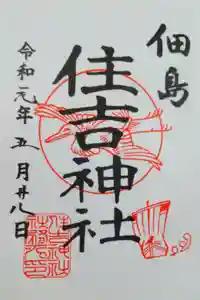 佃島
住吉神社
令和元年五月廿八日